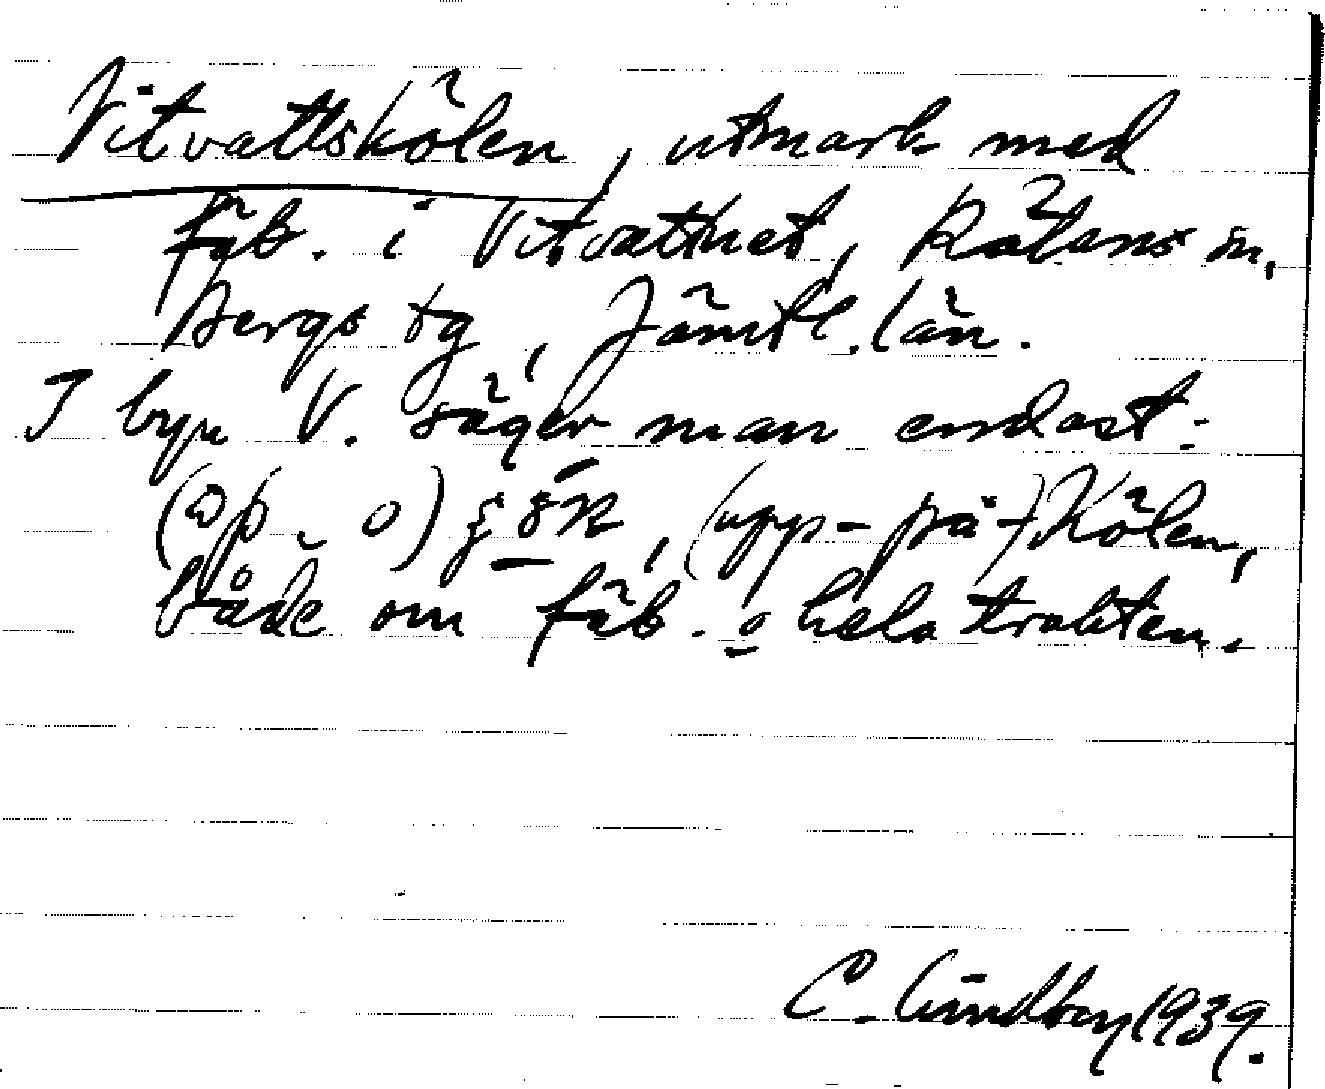 Vitvattskölen, utmark med
fäb. i Vitvattnet, Rätans sn,
Bergs tg, Jämtl. län.
I byn V. säger man endast:
(upp- på-) Kölen,
både om fäb. o hela trakten.
C. Lindberg 1939.